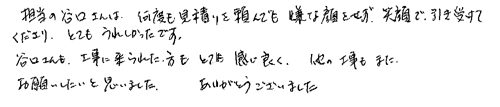 担当の谷口さんは、何度も見積りを頼んでも嫌な顔をせず、笑顔で、引き受けて
くださり、とてもうれしかったです。
谷口さんも、工事に来られた方も、とても感じ良く、他の工事もまた、
お願いしたいと思いました。 ありがとうございました